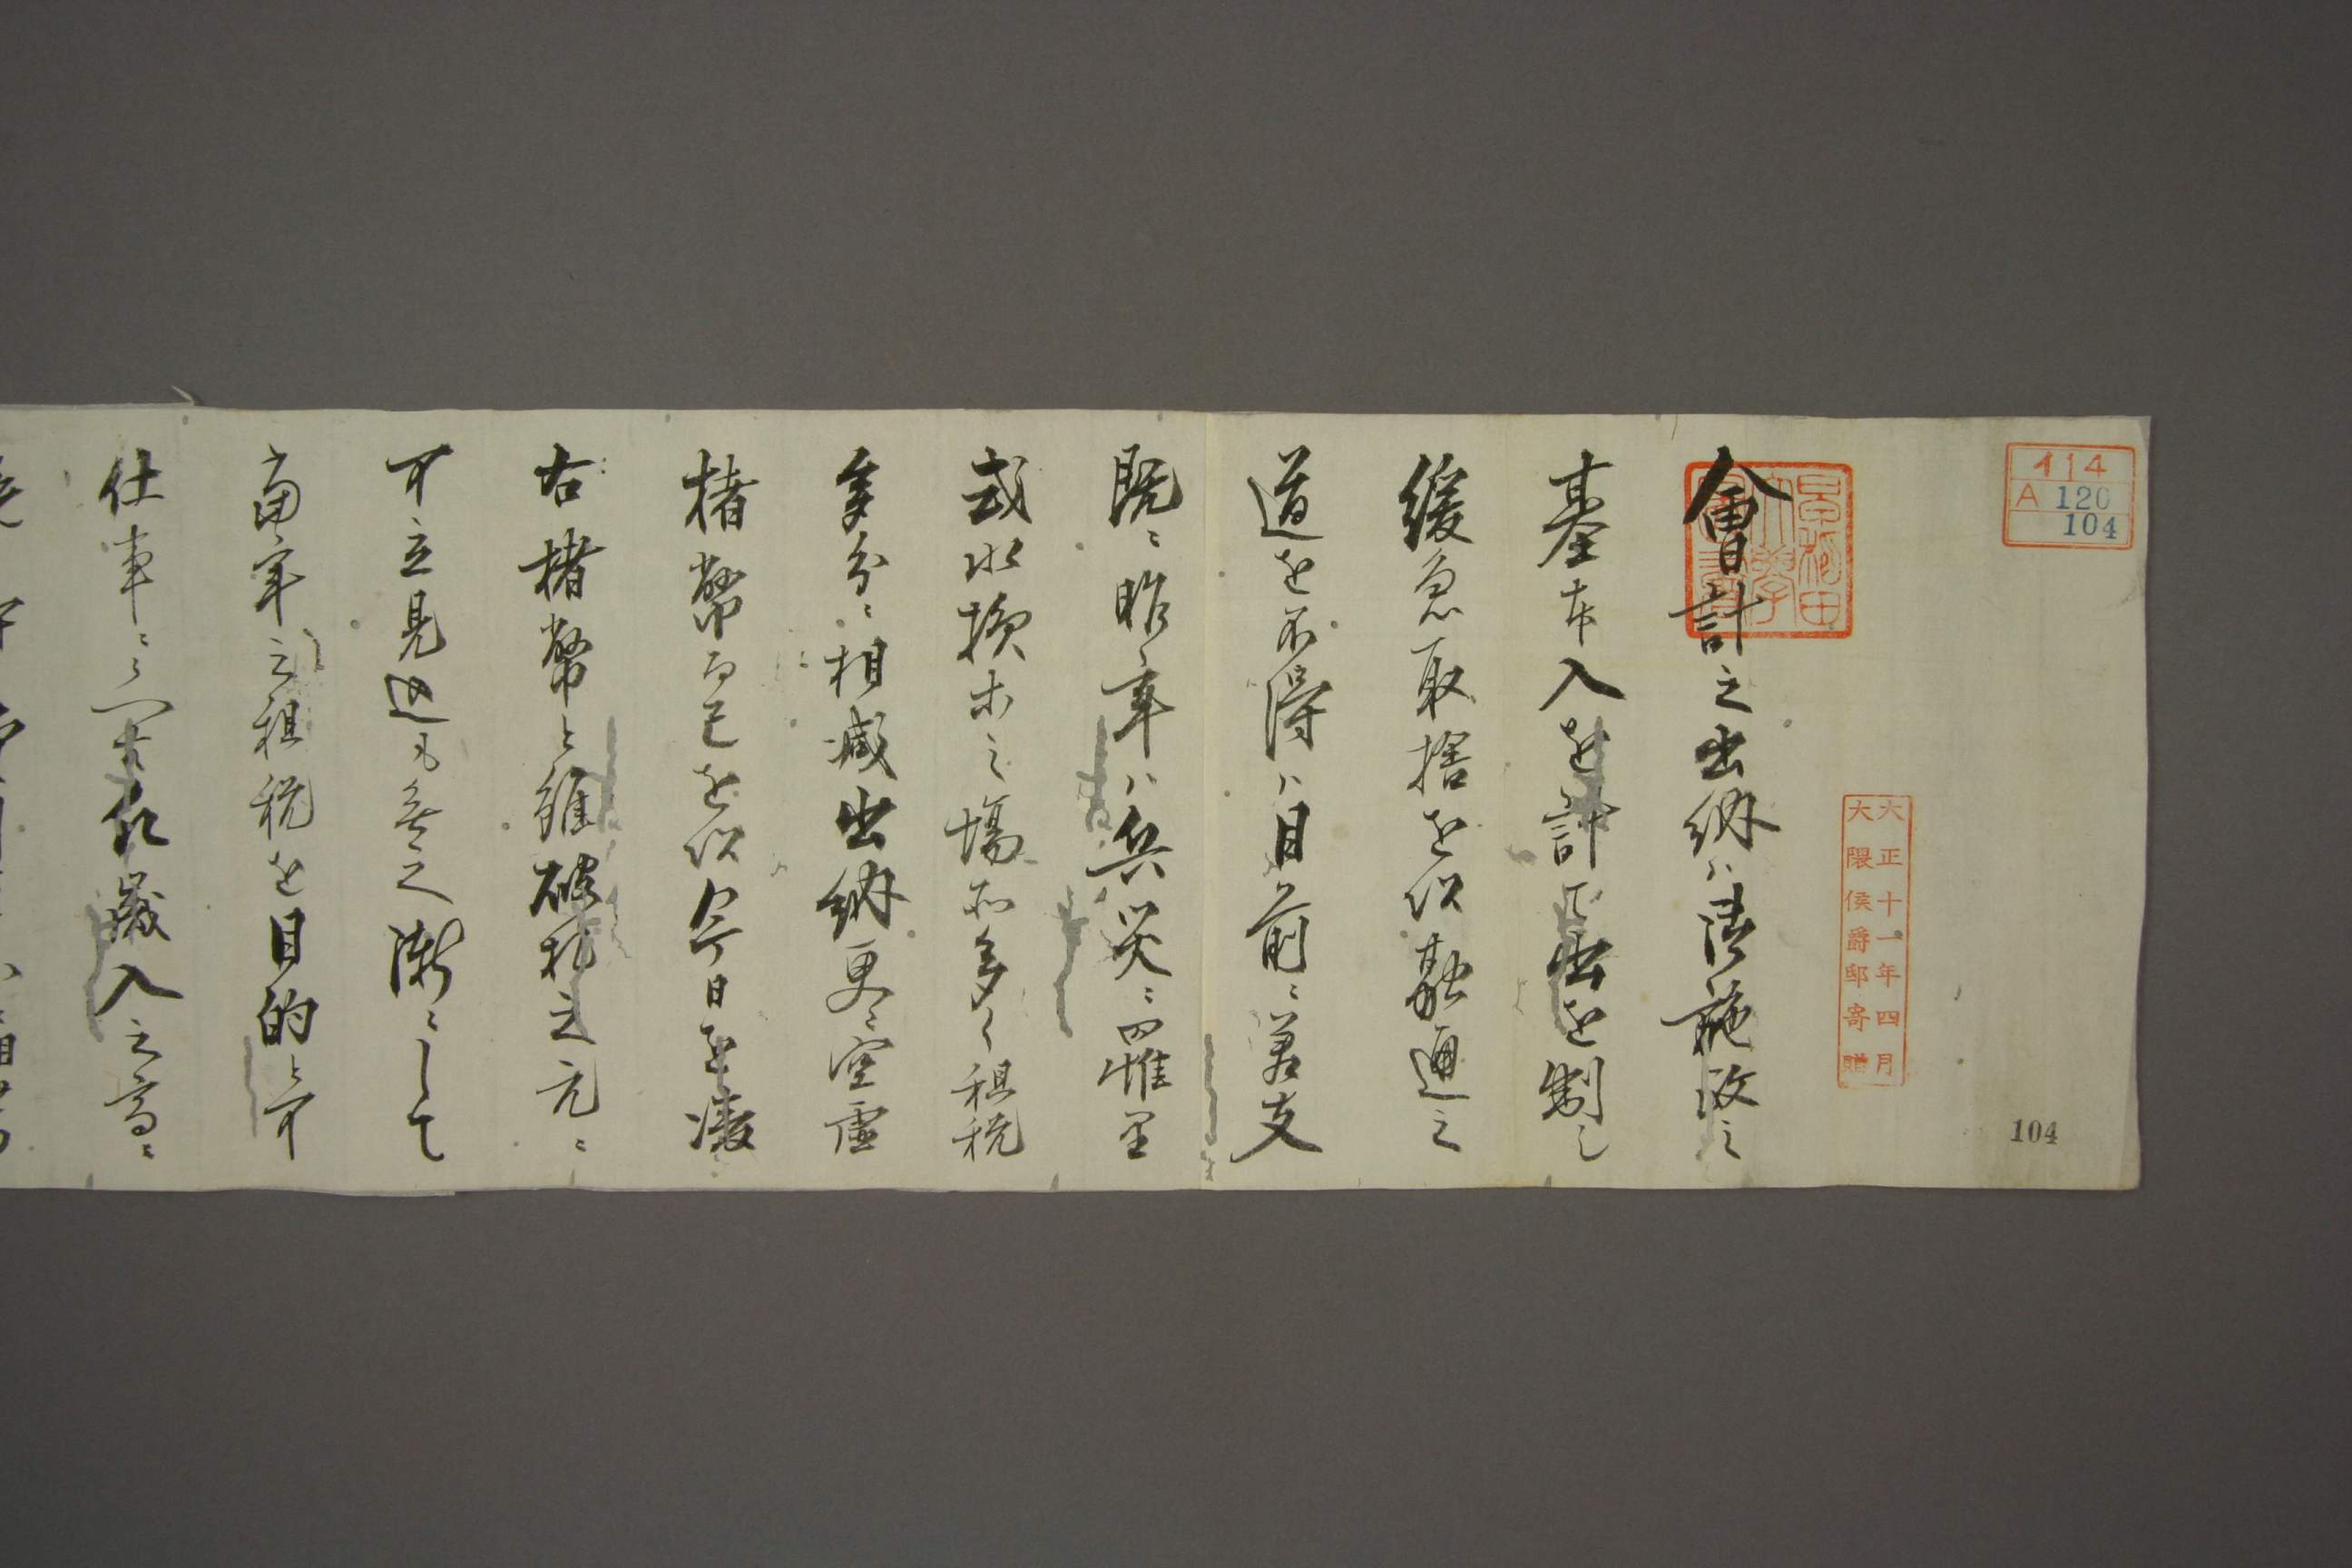 イ14
A 120
104
104
大正十一年四月
大隈侯爵邸寄贈
早稲田大学図書
會計之出納ハ御施政之
基本入を計て出を制し
緩急取捨を以融通之
道を不得ハ目前ニ差支
既ニ昨年ハ兵災ニ罹里
或水損等之場所多く租税
多分ニ相減出納更ニ空虚
楮幣而已を以今日を凌
右楮幣と雖破札之元ニ
可立見込も無之漸ニして
當年之租税を目的と可
仕事ニ候へ共歳入之高ニ